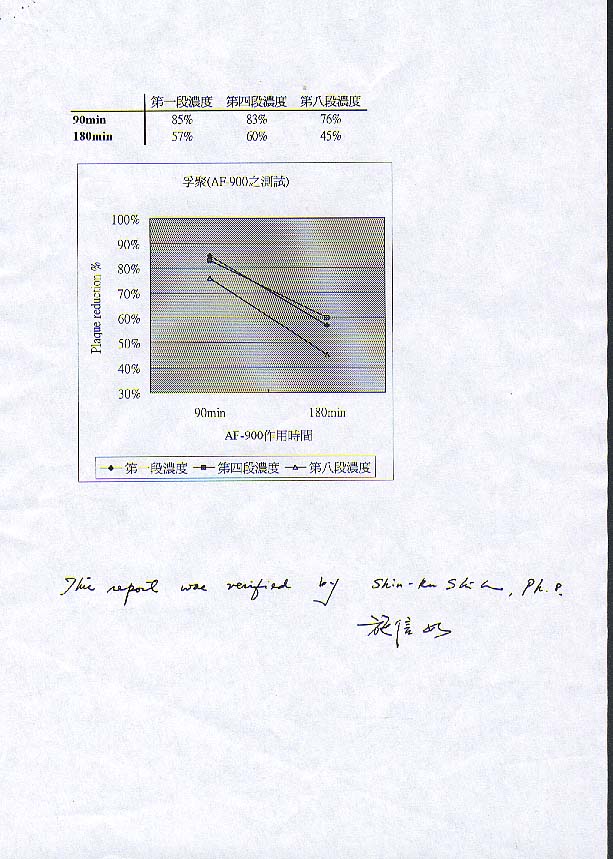 第一段濃度 第四段濃度 第八段濃度
90min 85% 83% 76%
180min 57% 60% 45%
孚聚(AF-900之測試)
100%
90%
80%
70%
60%
50%
40%
30%
Plaque reduction %
90min 180min
AF-900作用時間
第一段濃度 第四段濃度 第八段濃度
This report was verified by Shin-Ru Shih, Ph.D.
施信如